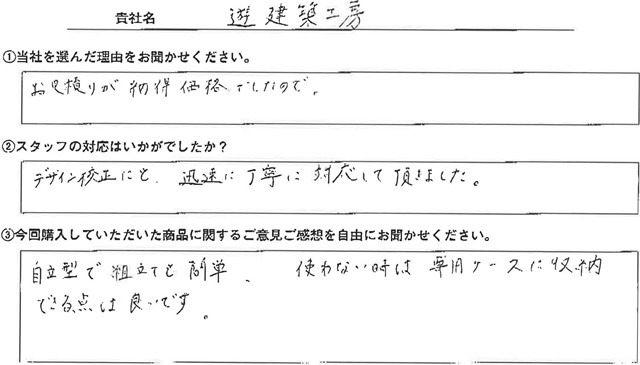 貴社名 遊建築工房
①当社を選んだ理由をお聞かせください。
お見積りが納得価格でしたので。
②スタッフの対応はいかがでしたか？
デザイン修正にも、迅速に丁寧に対応して頂きました。
③今回購入していただいた商品に関するご意見ご感想を自由にお聞かせください。
自立型で組立ても簡単、使わない時は専用ケースに収納
できる点は良いです。